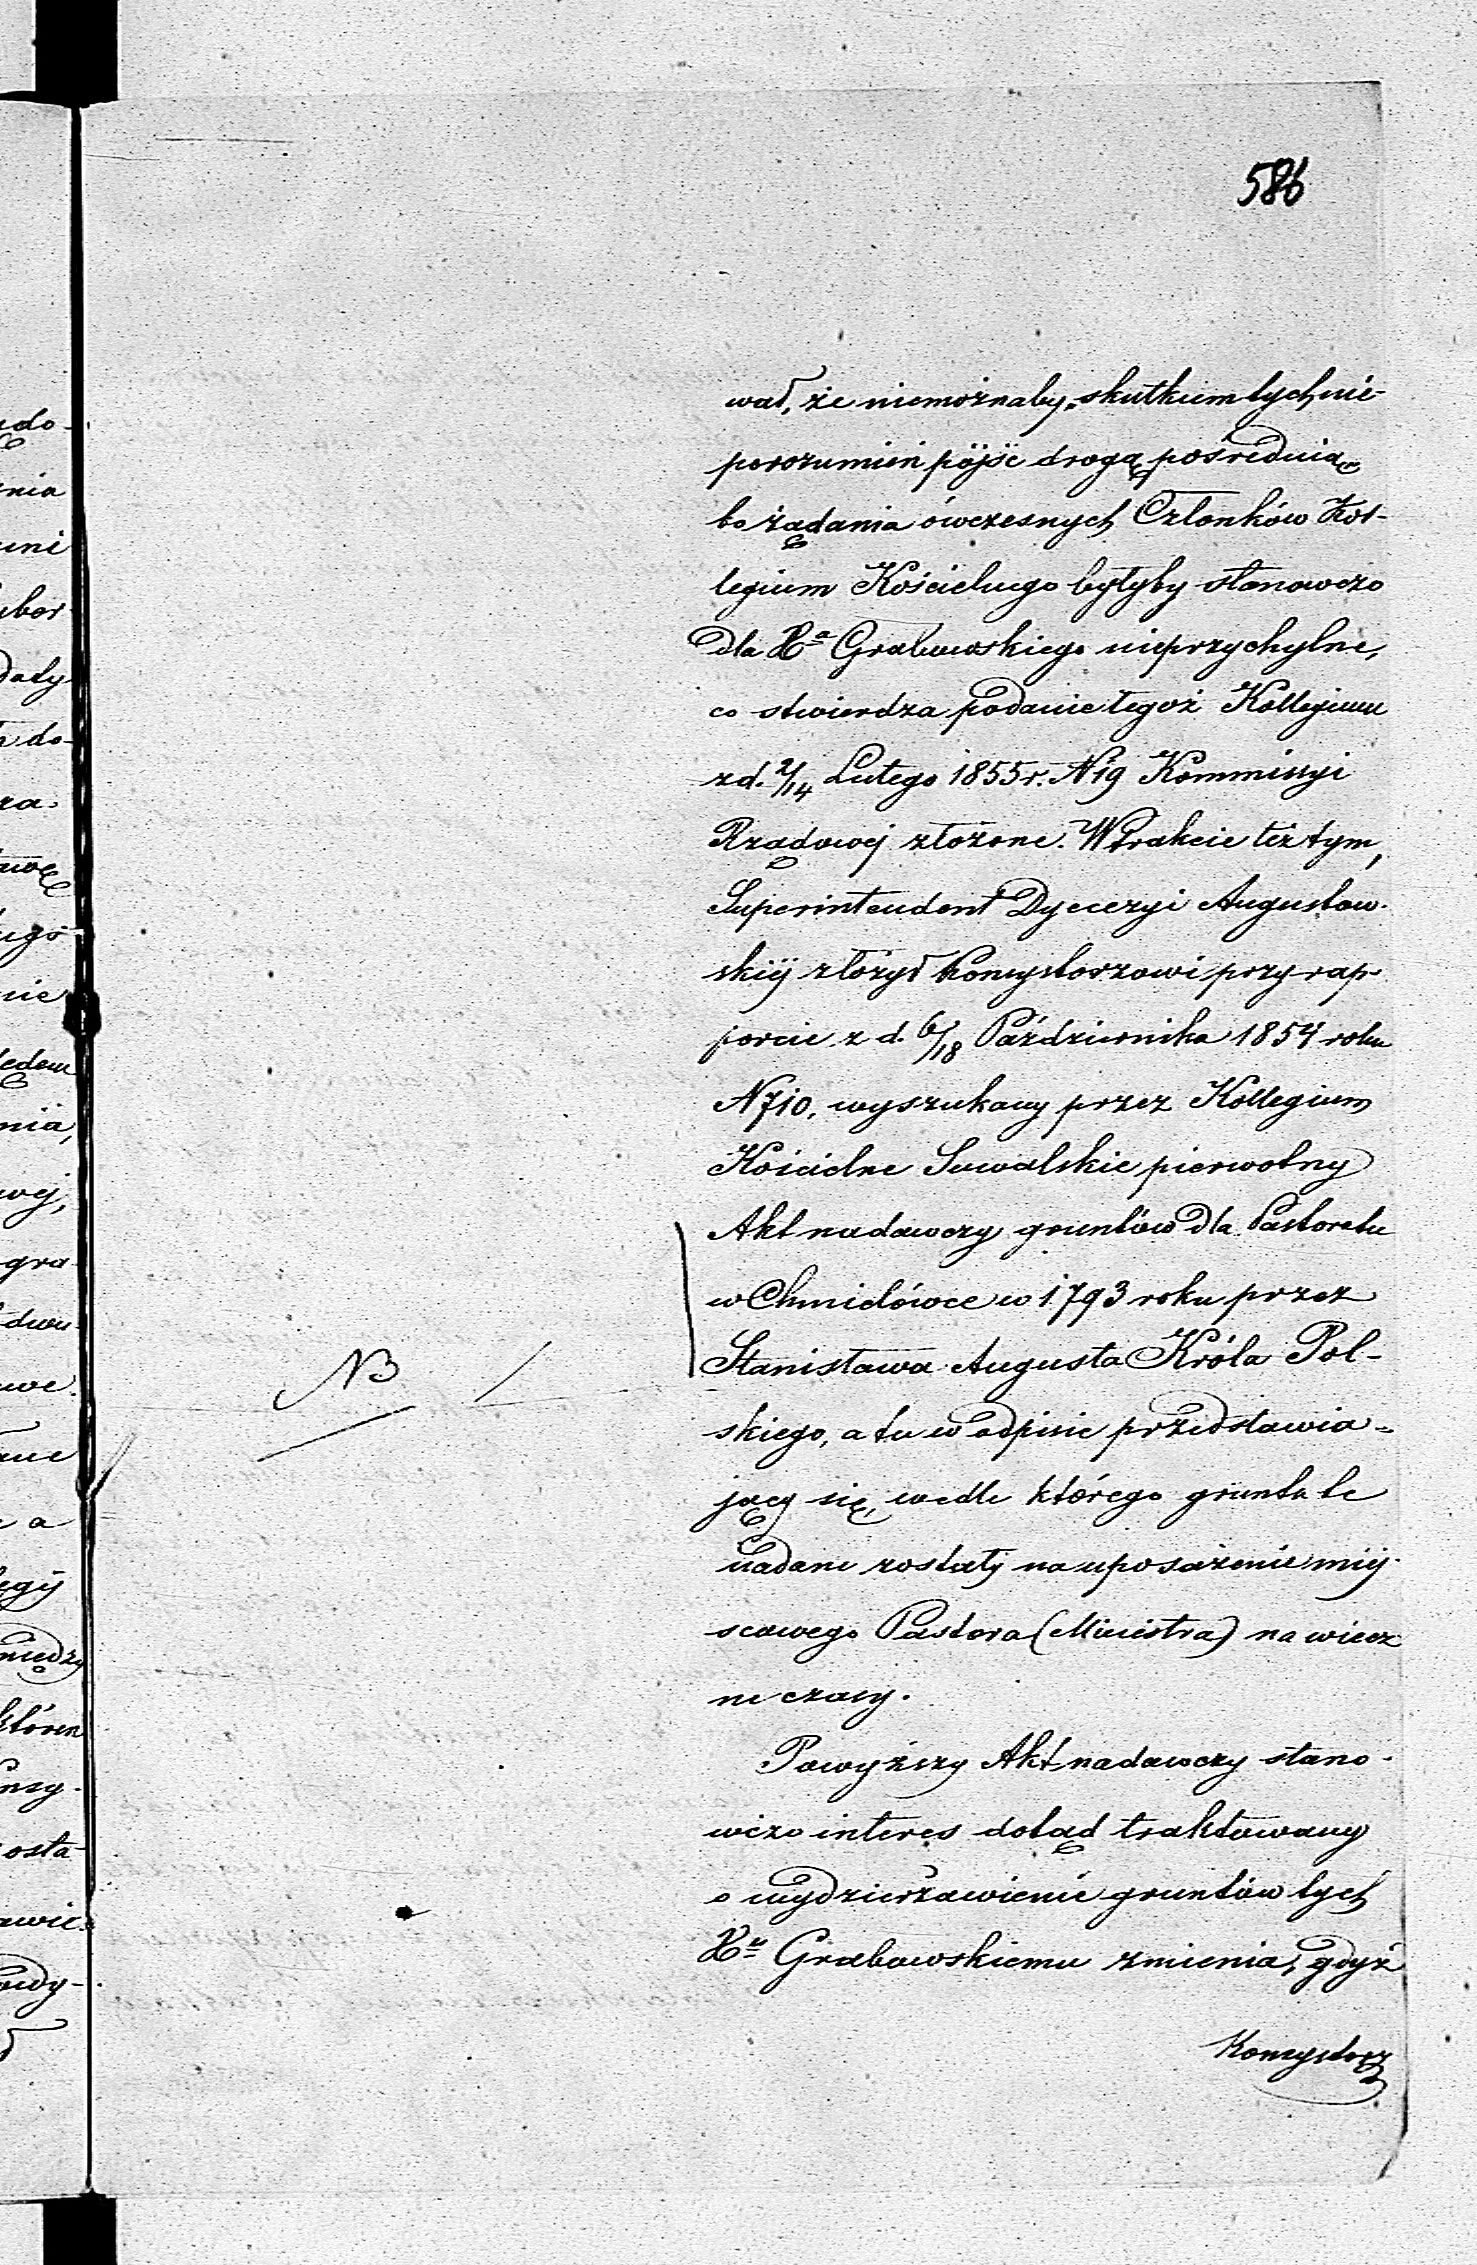 586
wał, że niemożnaby skutkiem tych nie-
porozumień pójść drogą pośrednią
bo żądania ówczesnych Członków Kol-
legium Kościelnego byłyby stanowczo
dla Xa Grabowskiego nieprzychylne,
co stwierdza podanie tegoż Kollegium
z d. 2/14 Lutego 1855 r. N 19 Kommissyi
Rządowej złożone. W trakcie też tym,
Superintendent Dyecezyi Augustow-
skiéj złożył Konsystorzowi przy rap-
porcie z d. 6/18 Października 1854 roku
N 710, wyszukany przez Kollegium
Kościelne Suwalskie pierwotny
Akt nadawczy gruntów dla Pastoratu
w Chmielówce w 1793 roku przez
NB Stanisława Augusta Króla Pol-
skiego, a tu w odpisie przedstawia-
jący się, wedle którego grunta te
nadane zostały na uposażenie miéj-
scowego Pastora (Ministra) na wiecz
ne czasy.
Powyższy Akt nadawczy stano-
wczo interes dotąd traktowany
o wydzierżawienie gruntów tych
Xu Grabowskiemu zmienia, gdyż
Konsystorz